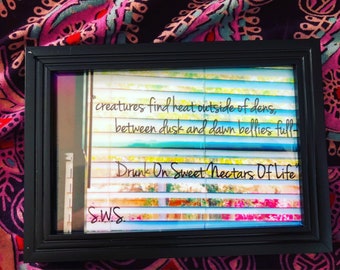 creatures find heat outside of dens,
between dusk and dawn bellies full-
Drunk On Sweet Nectars Of Life
S.W.S.